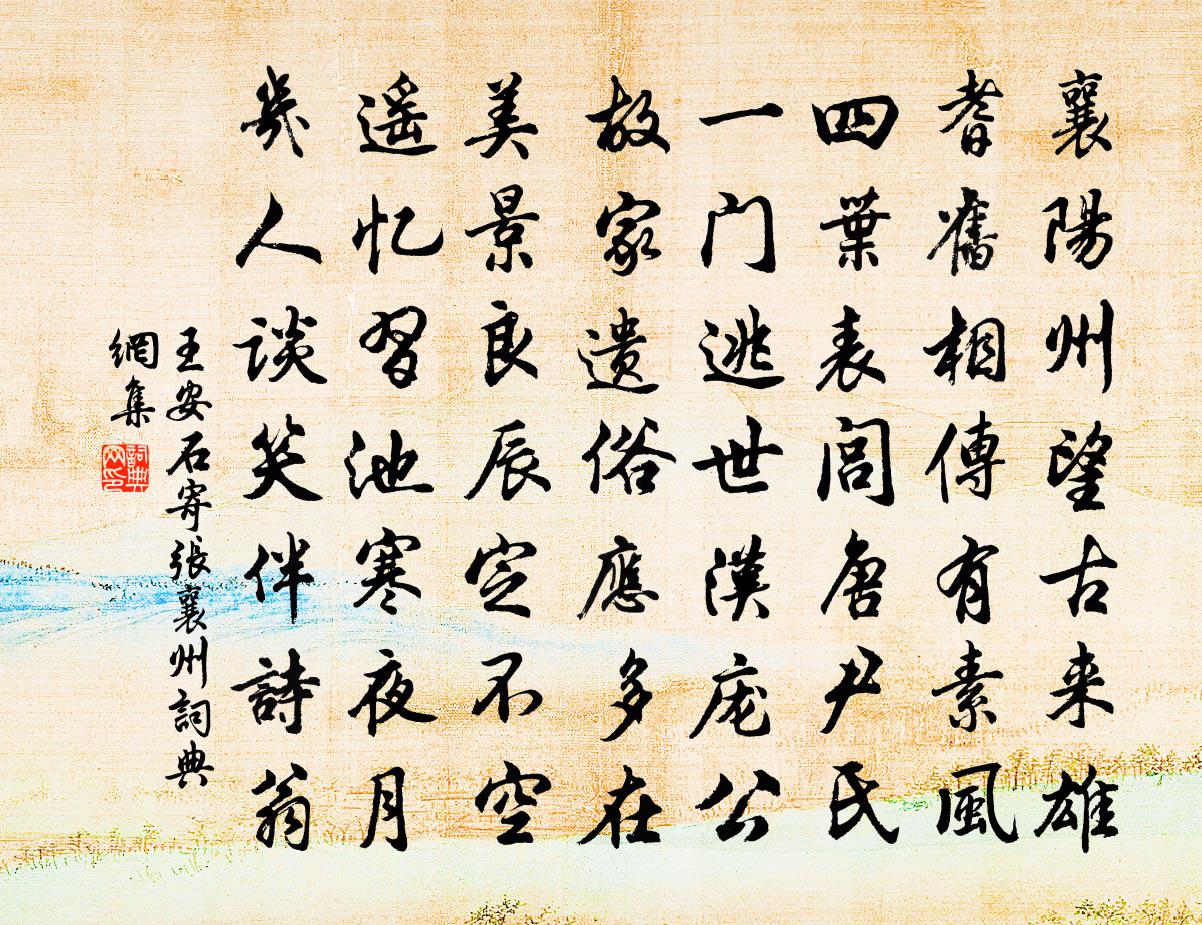 襄陽州望古来雄
耆舊相傳有素風
四葉表閭唐尹氏
一门逃世漢庞公
故家遗俗應多在
美景良辰定不空
遥忆習池寒夜月
幾人谈笑伴詩翁
王安石寄張襄州詞典
網集
詞典